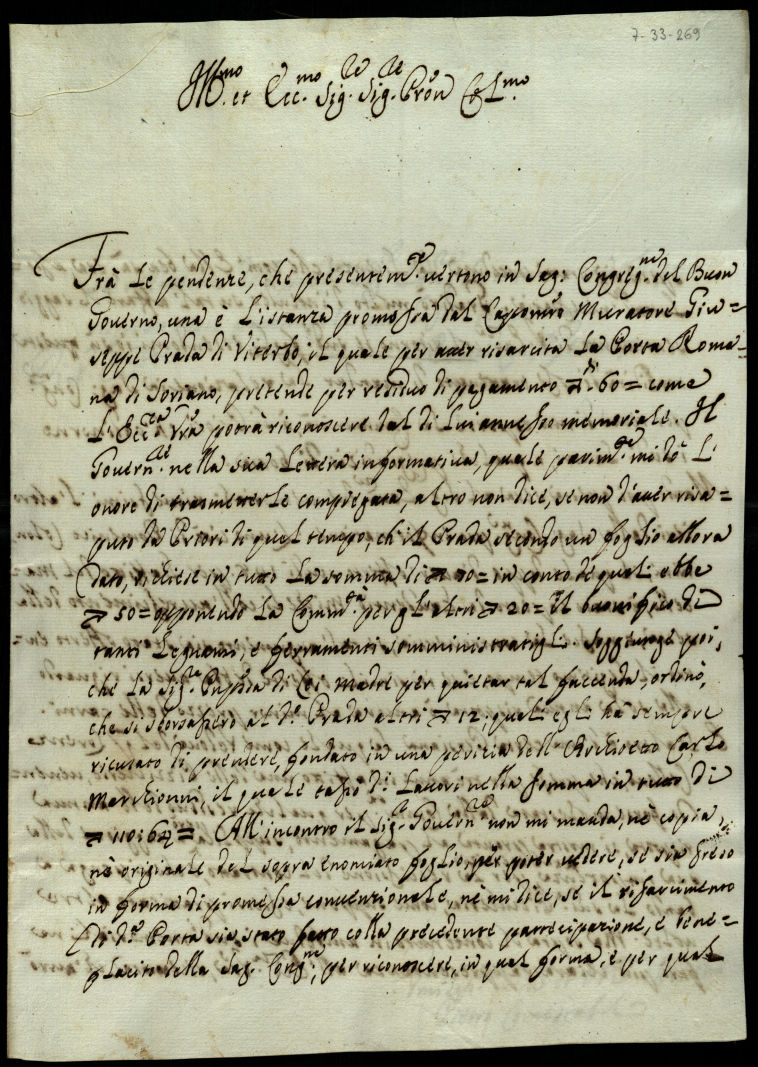 7-33-269
Ill.mo et Ecc.mo Sig.re Sig.re Prõn Col.mo
Frà le pendenze, che presentem.te vertono in Sag: Congreg.ne del Buon
Governo, una è l'istanza promossa dal Capom.ro Muratore Giu=
seppe Prada di Viterbo, il quale per aver risarcita la Porta Roma=
na di Soriano, pretende per residuo di pagamento 60= come
L'Ecc.za Vrã potrà riconoscere dal di lui annesso memoriale. Il
Govern.re nella sua lettera informativa, quale parim.te mi dò l'
onore di trasmetterle compiegata, altro non dice, se non d'aver risa=
puto da Priori di quel tempo, ch'il Prada secondo un foglio allora
dato, richiese in tutto la somma di 70= in conto de quali ebbe
50= opponendo la Comm.tà per gl'altri 20= il buonifico di
tanti legnami, e ferramenti somministratigli. Soggiunge poi,
che la Sig.ra Pñssa di Lei Madre per quietar tal faccenda, ordinò,
che si sborsassero al d.o Prada altri 12; quali egli hà sempre
ricusato di prendere, fondato in una perizia dell'Architetto Carlo
Marchionni, il quale tassò d.i Lavori nella somma in tutto di
110:64=. All'incontro il Sig.r Govern.re non mi manda, nè copia,
nè originale del sopra enonciato foglio, per poter vedere, se sia steso
in forma di promessa convenzionale, nè mi dice, se il risarcimento
di d.a Porta sia stato fatto colla precedente partecipazione, e bene=
placito della Sag. Cong.ne, per riconoscere, in qual forma, e per qual